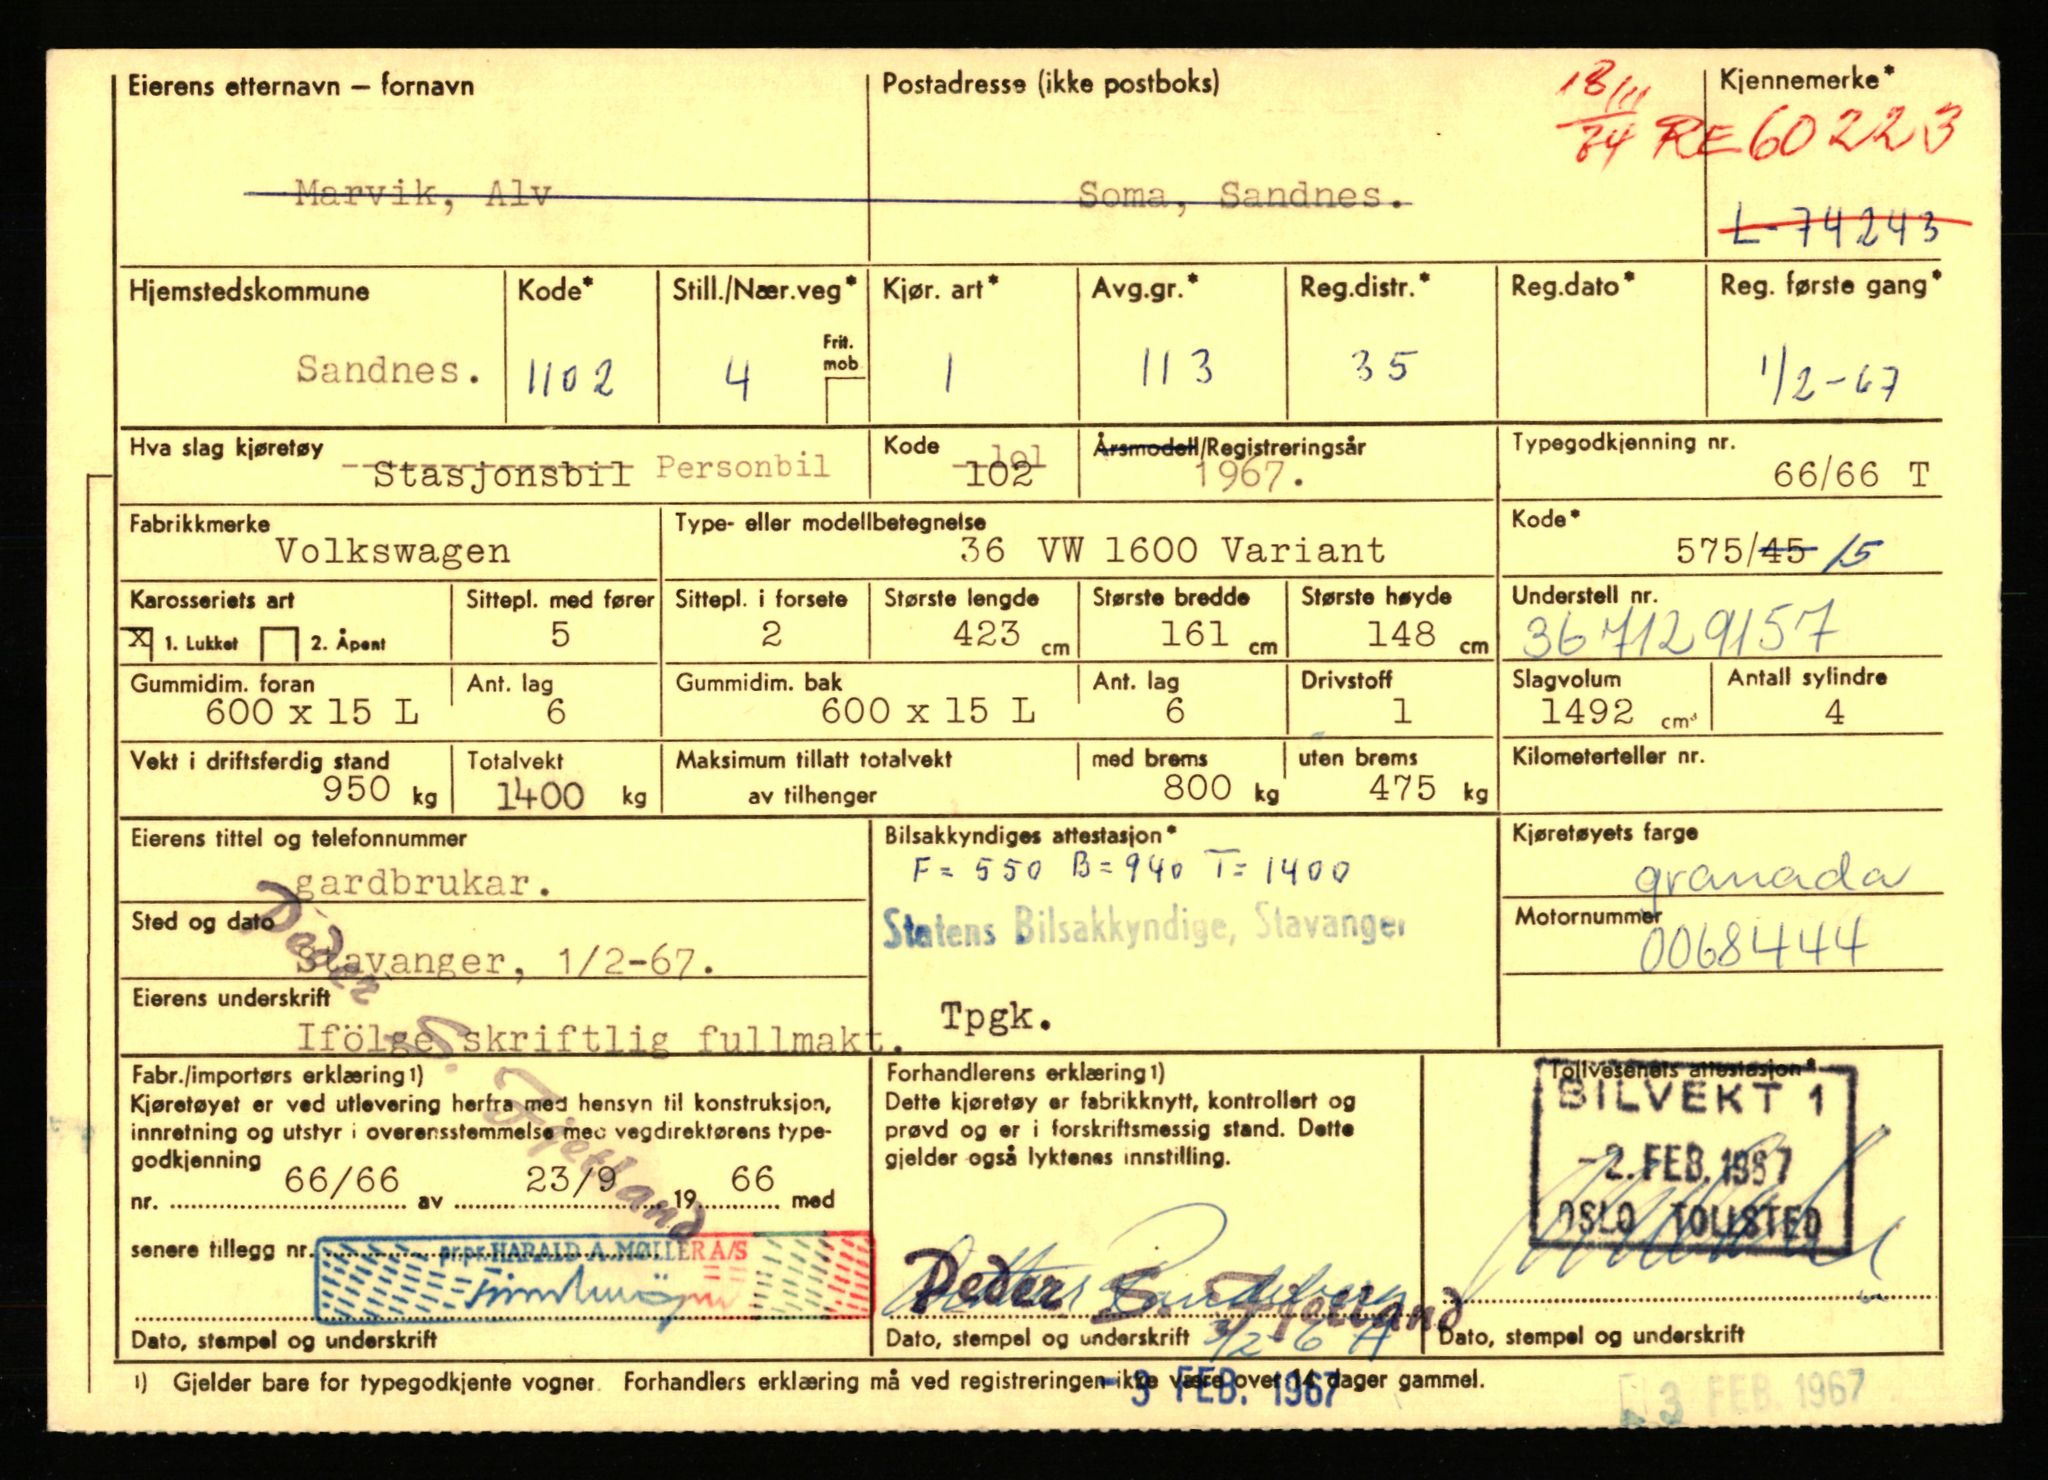 Eierens etternavn — fornavn
Postadresse (ikke postboks)
18/11
84
Kjennemerke*
RE 60223
Marvik, Alv
Soma, Sandnes.
L-74243
Hjemstedskommune
Kode*
Still./Nær.veg*
Kjør. art*
Avg.gr.*
Reg.distr.*
Reg.dato*
Reg. første gang*
Frit.
mob
Sandnes.
1102
4
1
113
35
1/2-67
Hva slag kjøretøy
Stasjonsbil Personbil
Kode
101
102
Årsmodell/Registreringsår
1967.
Typegodkjenning nr.
66/66 T
Fabrikkmerke
Volkswagen
Type- eller modellbetegnelse
36 VW 1600 Variant
Kode*
575/45 15
Karosseriets art
X 1. Lukket 2. Åpent
Sittepl. med fører
5
Sittepl. i forsete
2
Største lengde
423 cm
Største bredde
161 cm
Største høyde
148 cm
Understell nr.
367129157
Gummidim. foran
600 x 15 L
Ant. lag
6
Gummidim. bak
600 x 15 L
Ant. lag
6
Drivstoff
1
Slagvolum
1492 cm³
Antall sylindre
4
Vekt i driftsferdig stand
950 kg
Totalvekt
1400 kg
Maksimum tillatt totalvekt
av tilhenger
med brems
800 kg
uten brems
475 kg
Kilometerteller nr.
Eierens tittel og telefonnummer
gardbrukar.
Bilsakkyndiges attestasjon*
F = 550 B = 940 T = 1400
Statens Bilsakkyndige, Stavanger
Tpgk.
Kjøretøyets farge
granada
Motornummer
0068444
Sted og dato
Stavanger, 1/2-67.
Eierens underskrift
Ifölge skriftlig fullmakt.
Peder S. Fjetland
Fabr./importørs erklæring 1)
Kjøretøyet er ved utlevering herfra med hensyn til konstruksjon,
innretning og utstyr i overensstemmelse med vegdirektørens type-
godkjenning
nr. 66/66 av 23/9 19 66 med
senere tillegg nr.
pr.pr. HARALD A. MØLLER A/S
Dato, stempel og underskrift
Forhandlerens erklæring 1)
Dette kjøretøy er fabrikknytt, kontrollert og
prøvd og er i forskriftsmessig stand. Dette
gjelder også lyktenes innstilling.
Peder S. Fjetland
Dato, stempel og underskrift
Tollvesenets attestasjon*
BILVEKT 1
-2. FEB. 1967
OSLO TOLLSTED
Dato, stempel og underskrift
1) Gjelder bare for typegodkjente vogner. Forhandlers erklæring må ved registreringen ikke være over 14 dager gammel.
- 3 FEB. 1967
3 FEB. 1967